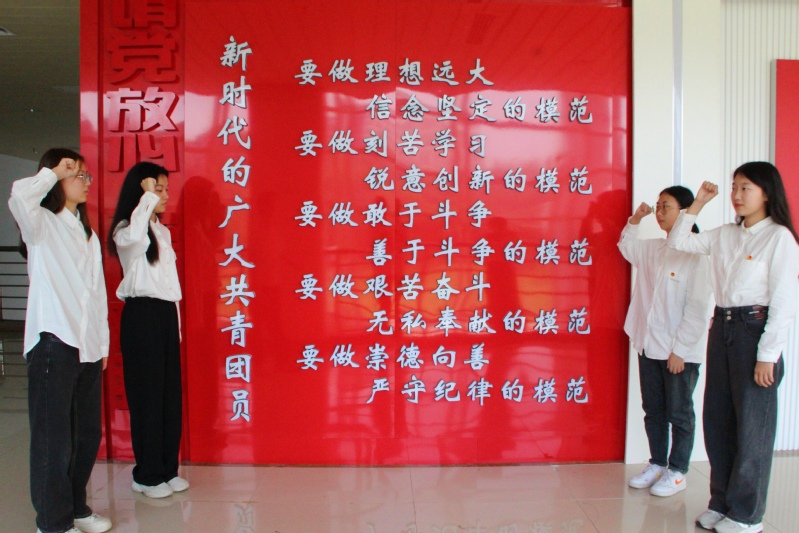 请党放心
新时代的广大共青团员
要做理想远大
信念坚定的模范
要做刻苦学习
锐意创新的模范
要做敢于斗争
善于斗争的模范
要做艰苦奋斗
无私奉献的模范
要做崇德向善
严守纪律的模范